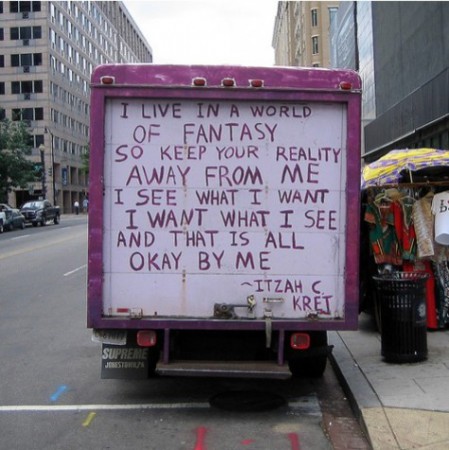 I LIVE IN A WORLD
OF FANTASY
SO KEEP YOUR REALITY
AWAY FROM ME
I SEE WHAT I WANT
I WANT WHAT I SEE
AND THAT IS ALL
OKAY BY ME
~ITZAH C.
KRET
SUPREME